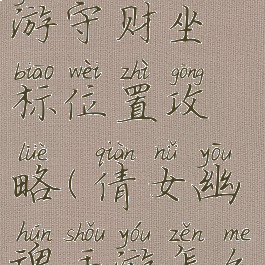 游守财坐
biāo wèi zhì gōng
标位置攻
lüè qiàn nǚ yōu
略(倩女幽
hún shǒu yóu zěn me
魂手游怎么